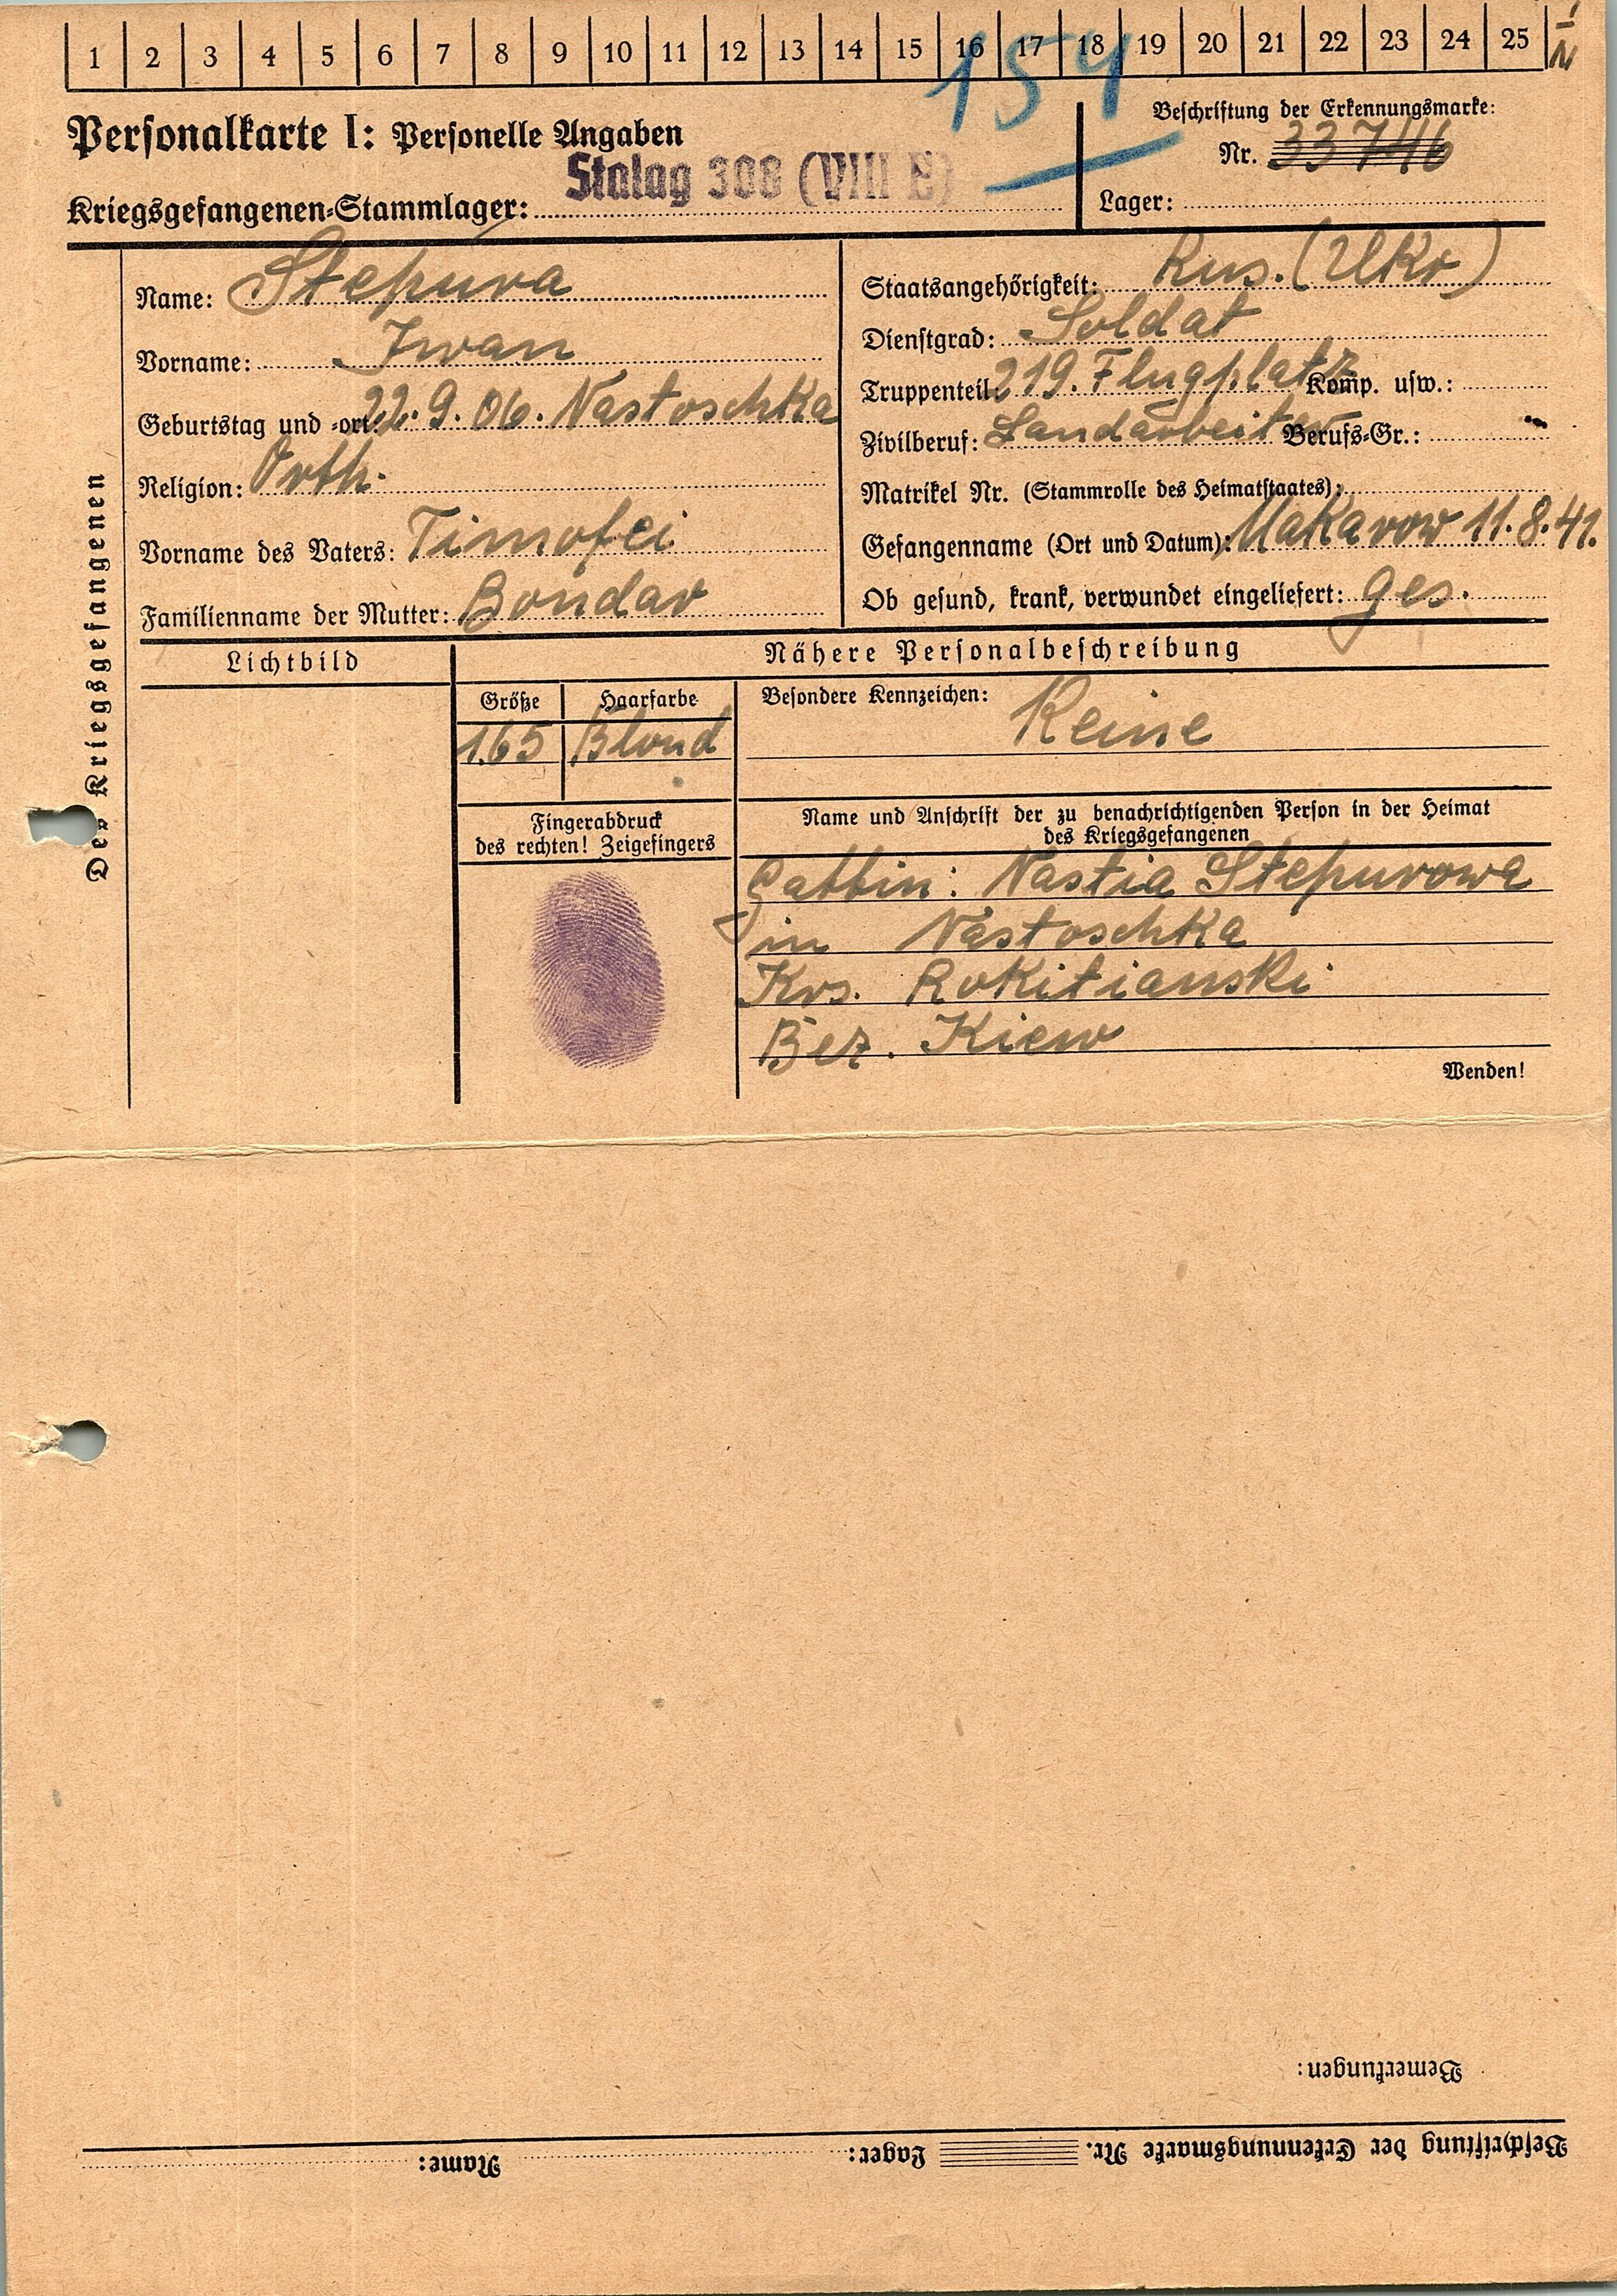 1 2 3 4 5 6 7 8 9 10 11 12 13 14 15 16 17 18 19 20 21 22 23 24 25
154
Personalkarte I: Personelle Angaben
Beschriftung der Erkennungsmarke:
Nr. 33746
Kriegsgefangenen-Stammlager: Stalag 308 (VIII E)
Lager:
Des Kriegsgefangenen
Name: Stepura
Vorname: Iwan
Geburtstag und -ort: 22.9.06. Nastoschka
Religion: Orth.
Vorname des Vaters: Timofei
Familienname der Mutter: Bondar
Staatsangehörigkeit: Rus. (Ukr)
Dienstgrad: Soldat
Truppenteil: 219. Flugplatz Komp. usw.:
Zivilberuf: Landarbeiter Berufs-Gr.:
Matrikel Nr. (Stammrolle des Heimatstaates):
Gefangenname (Ort und Datum): Makarow 11.8.41.
Ob gesund, krank, verwundet eingeliefert: ges.
Lichtbild
Nähere Personalbeschreibung
Größe Haarfarbe
1.65 Blond
Besondere Kennzeichen: Keine
Fingerabdruck
des rechten! Zeigefingers
Name und Anschrift der zu benachrichtigenden Person in der Heimat
des Kriegsgefangenen
Gattin: Nastia Stepurowa
in Nastoschka
Krs. Rokitianski
Bez. Kiew
Wenden!
Bemerkungen:
Beschriftung der Erkennungsmarke Nr. Lager: Name: